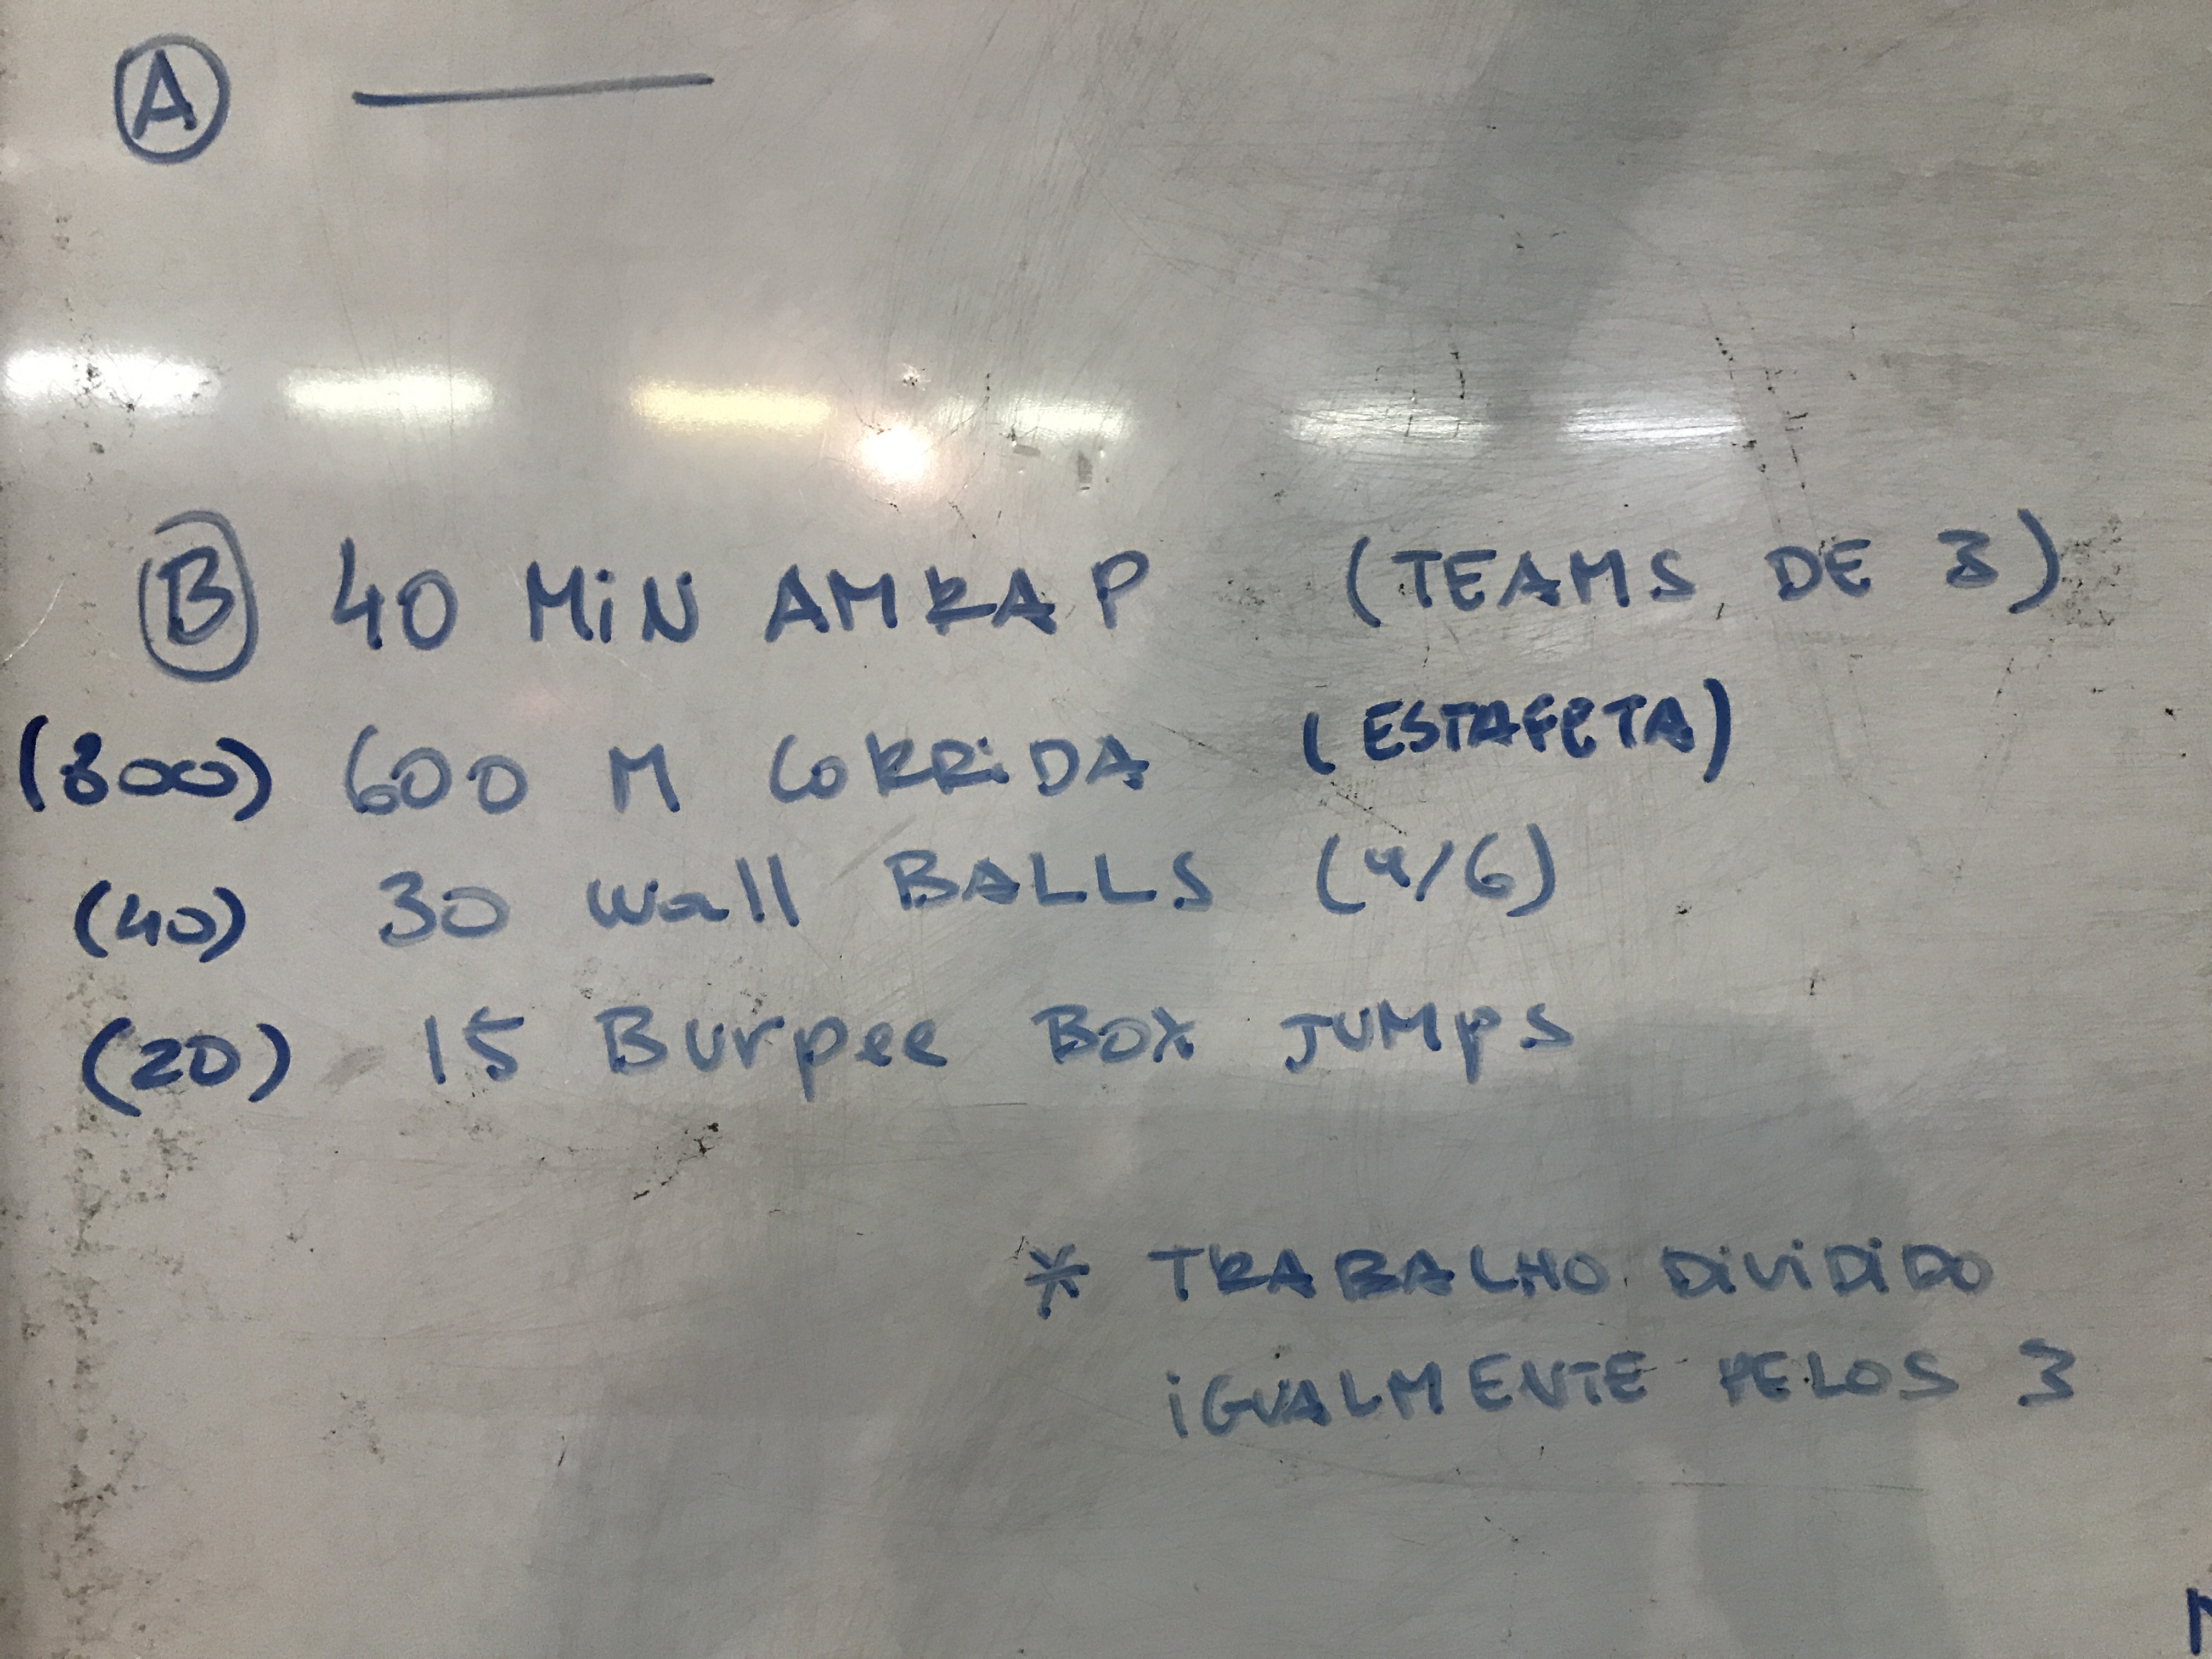 A ———
B 40 MiN AMRAP (TEAMS DE 3)
(800) 600 M CORRiDA (ESTAFETA)
(40) 30 Wall BALLS (4/6)
(20) 15 Burpee BOX JUMPS
* TRABALHO DiViDiDO
iGUALMENTE PELOS 3